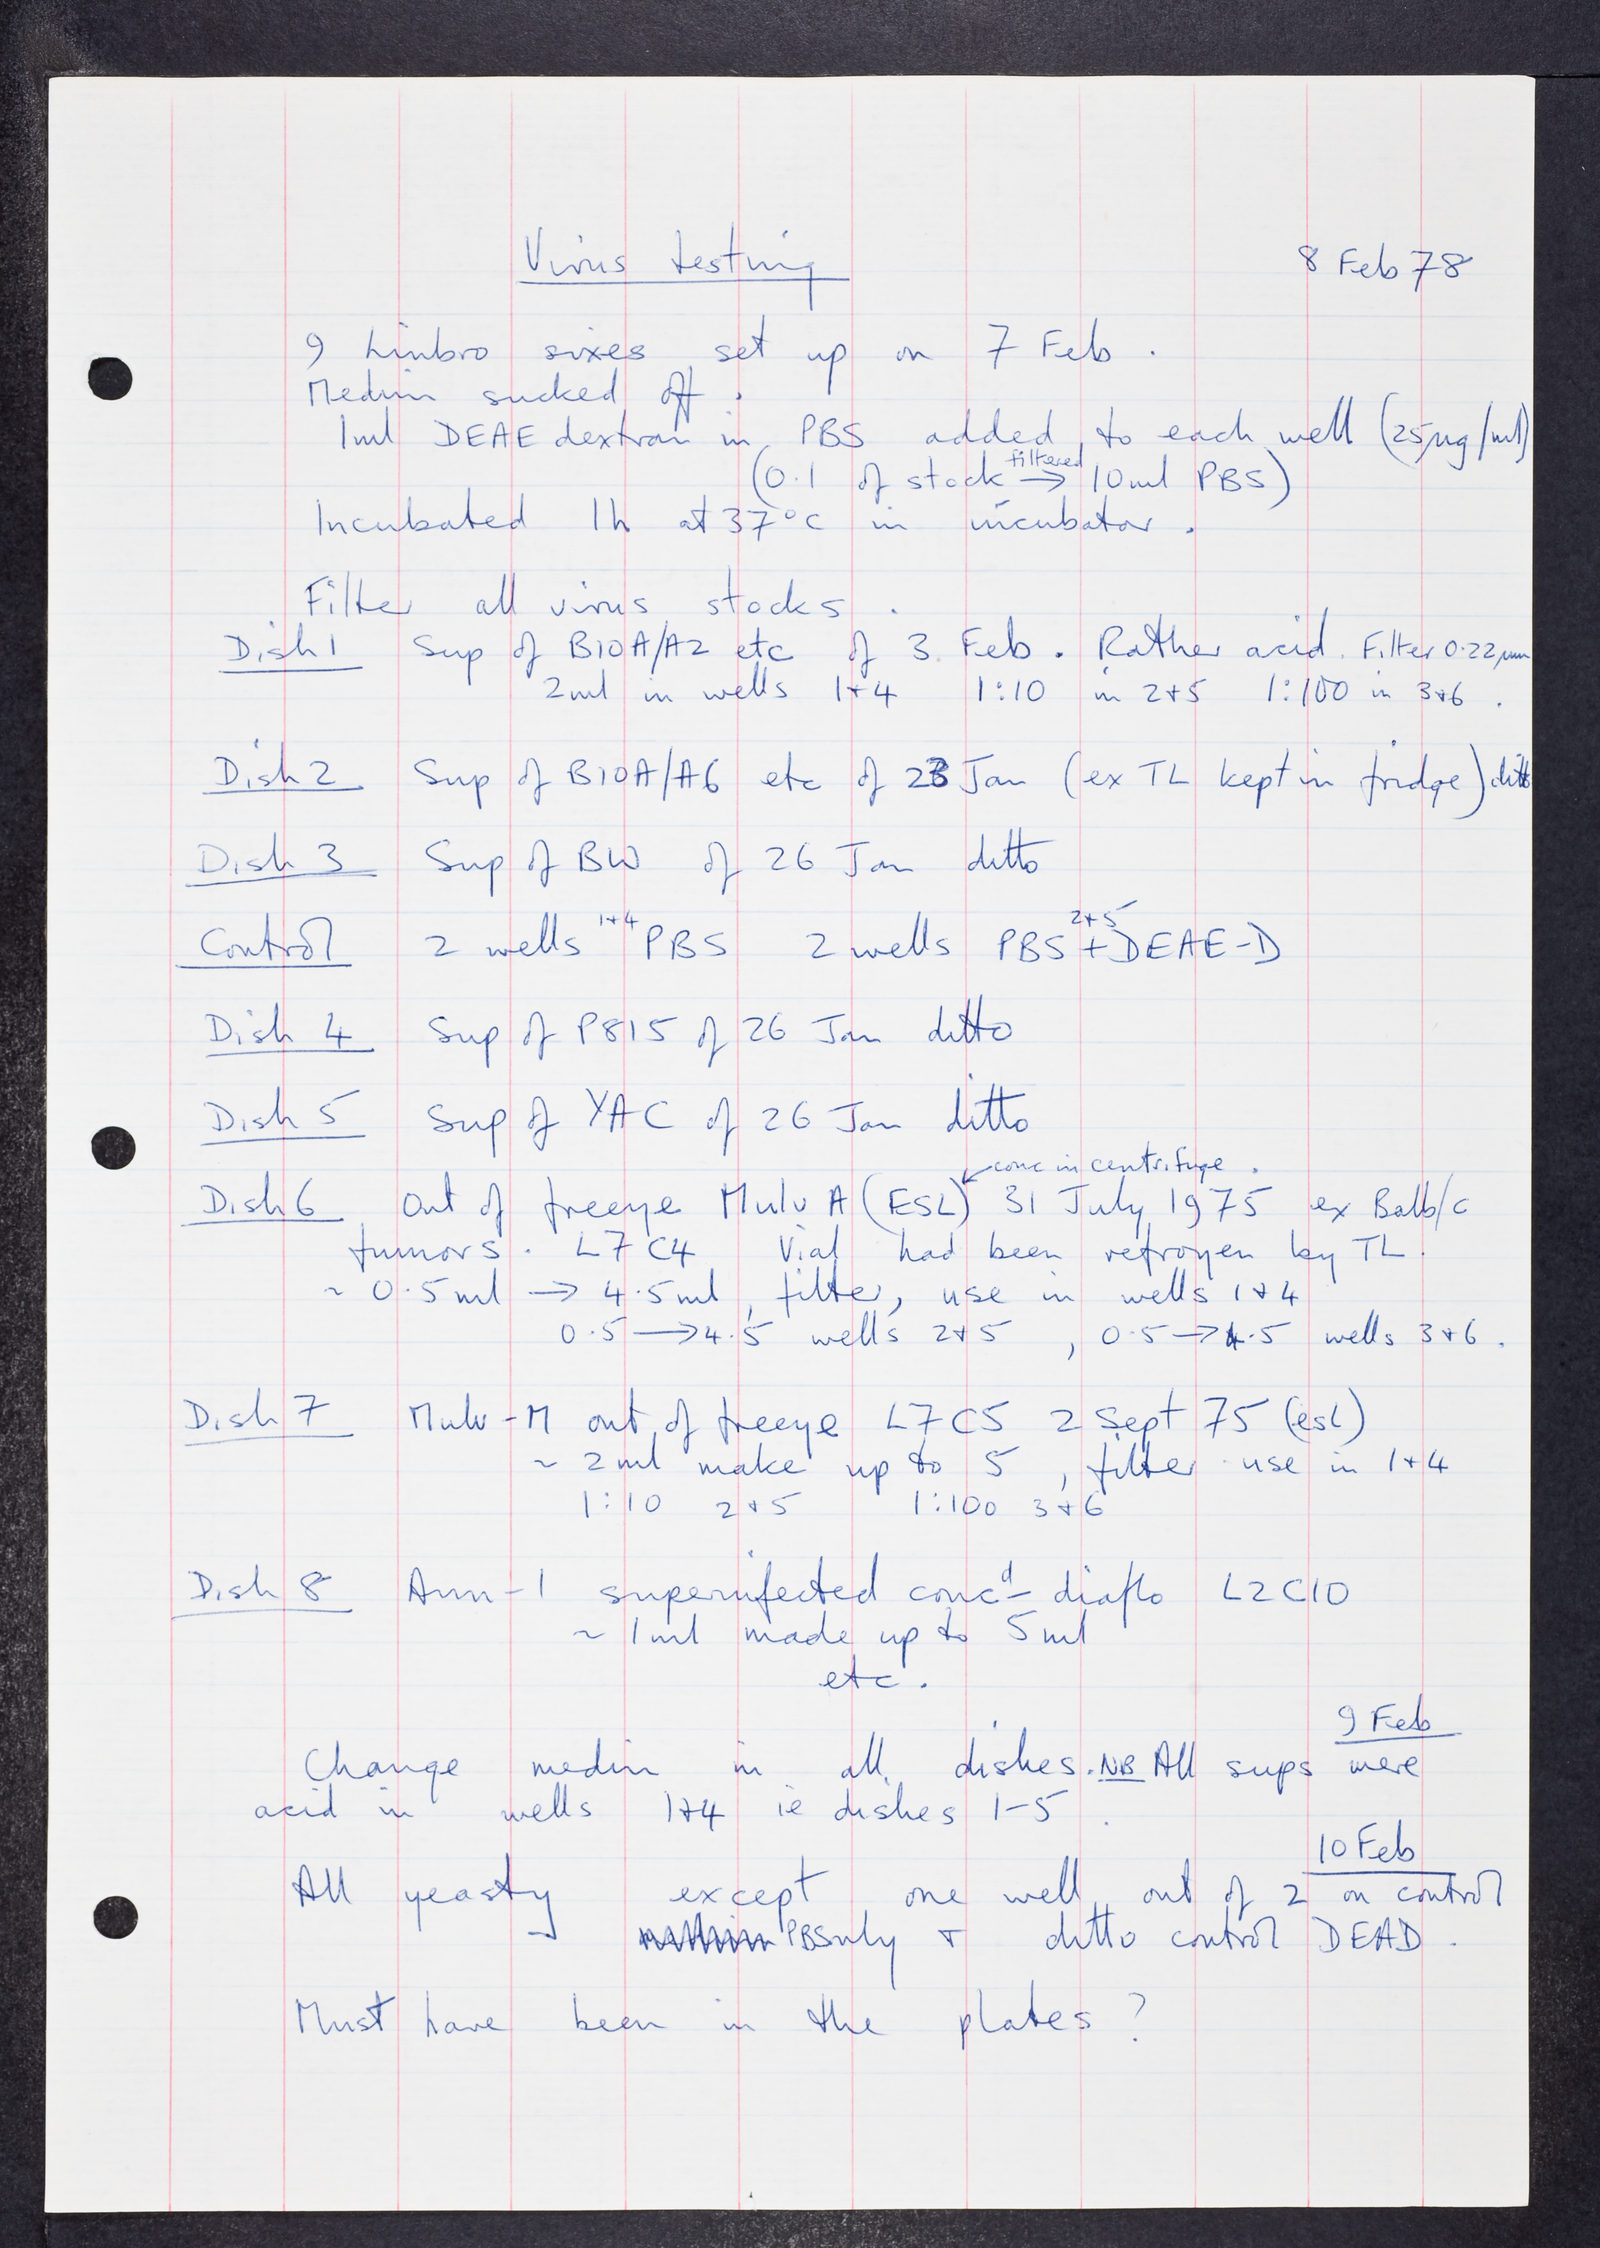 Virus testing 8 Feb 78
9 Linbro sixes set up on 7 Feb.
Medium sucked off.
1ml DEAE dextran in PBS added to each well (25µg/ml)
(0.1 of stock filtered → 10ml PBS)
Incubated 1h at 37°C in incubator.
Filter all virus stocks.
Dish 1 Sup of B10A/A2 etc of 3 Feb. Rather acid. Filter 0.22µm
2ml in wells 1+4 1:10 in 2+5 1:100 in 3+6.
Dish 2 Sup of B10A/A6 etc of 23 Jan (ex TL kept in fridge) ditto
Dish 3 Sup of BW of 26 Jan ditto
Control 2 wells 1+4 PBS 2 wells PBS 2+5 + DEAE-D
Dish 4 Sup of P815 of 26 Jan ditto
Dish 5 Sup of YAC of 26 Jan ditto
conc in centrifuge.
Dish 6 Out of freeze Mulv A (ESL) 31 July 1975 ex Balb/c
tumors. L7 C4 Vial had been refrozen by TL.
~ 0.5ml → 4.5ml, filter, use in wells 1+4
0.5 → 4.5 wells 2+5, 0.5 → 4.5 wells 3+6.
Dish 7 Mulv-M out of freeze L7 C5 2 Sept 75 (esl)
~ 2ml make up to 5, filter use in 1+4
1:10 2+5 1:100 3+6
Dish 8 Ann-1 superinfected concd diaflo L2 C10
~ 1ml made up to 5ml
etc.
9 Feb
Change medium in all dishes. NB All sups were
acid in wells 1+4 ie dishes 1-5.
10 Feb
All yeasty except one well out of 2 on control
PBS only + ditto control DEAD.
Must have been in the plates?